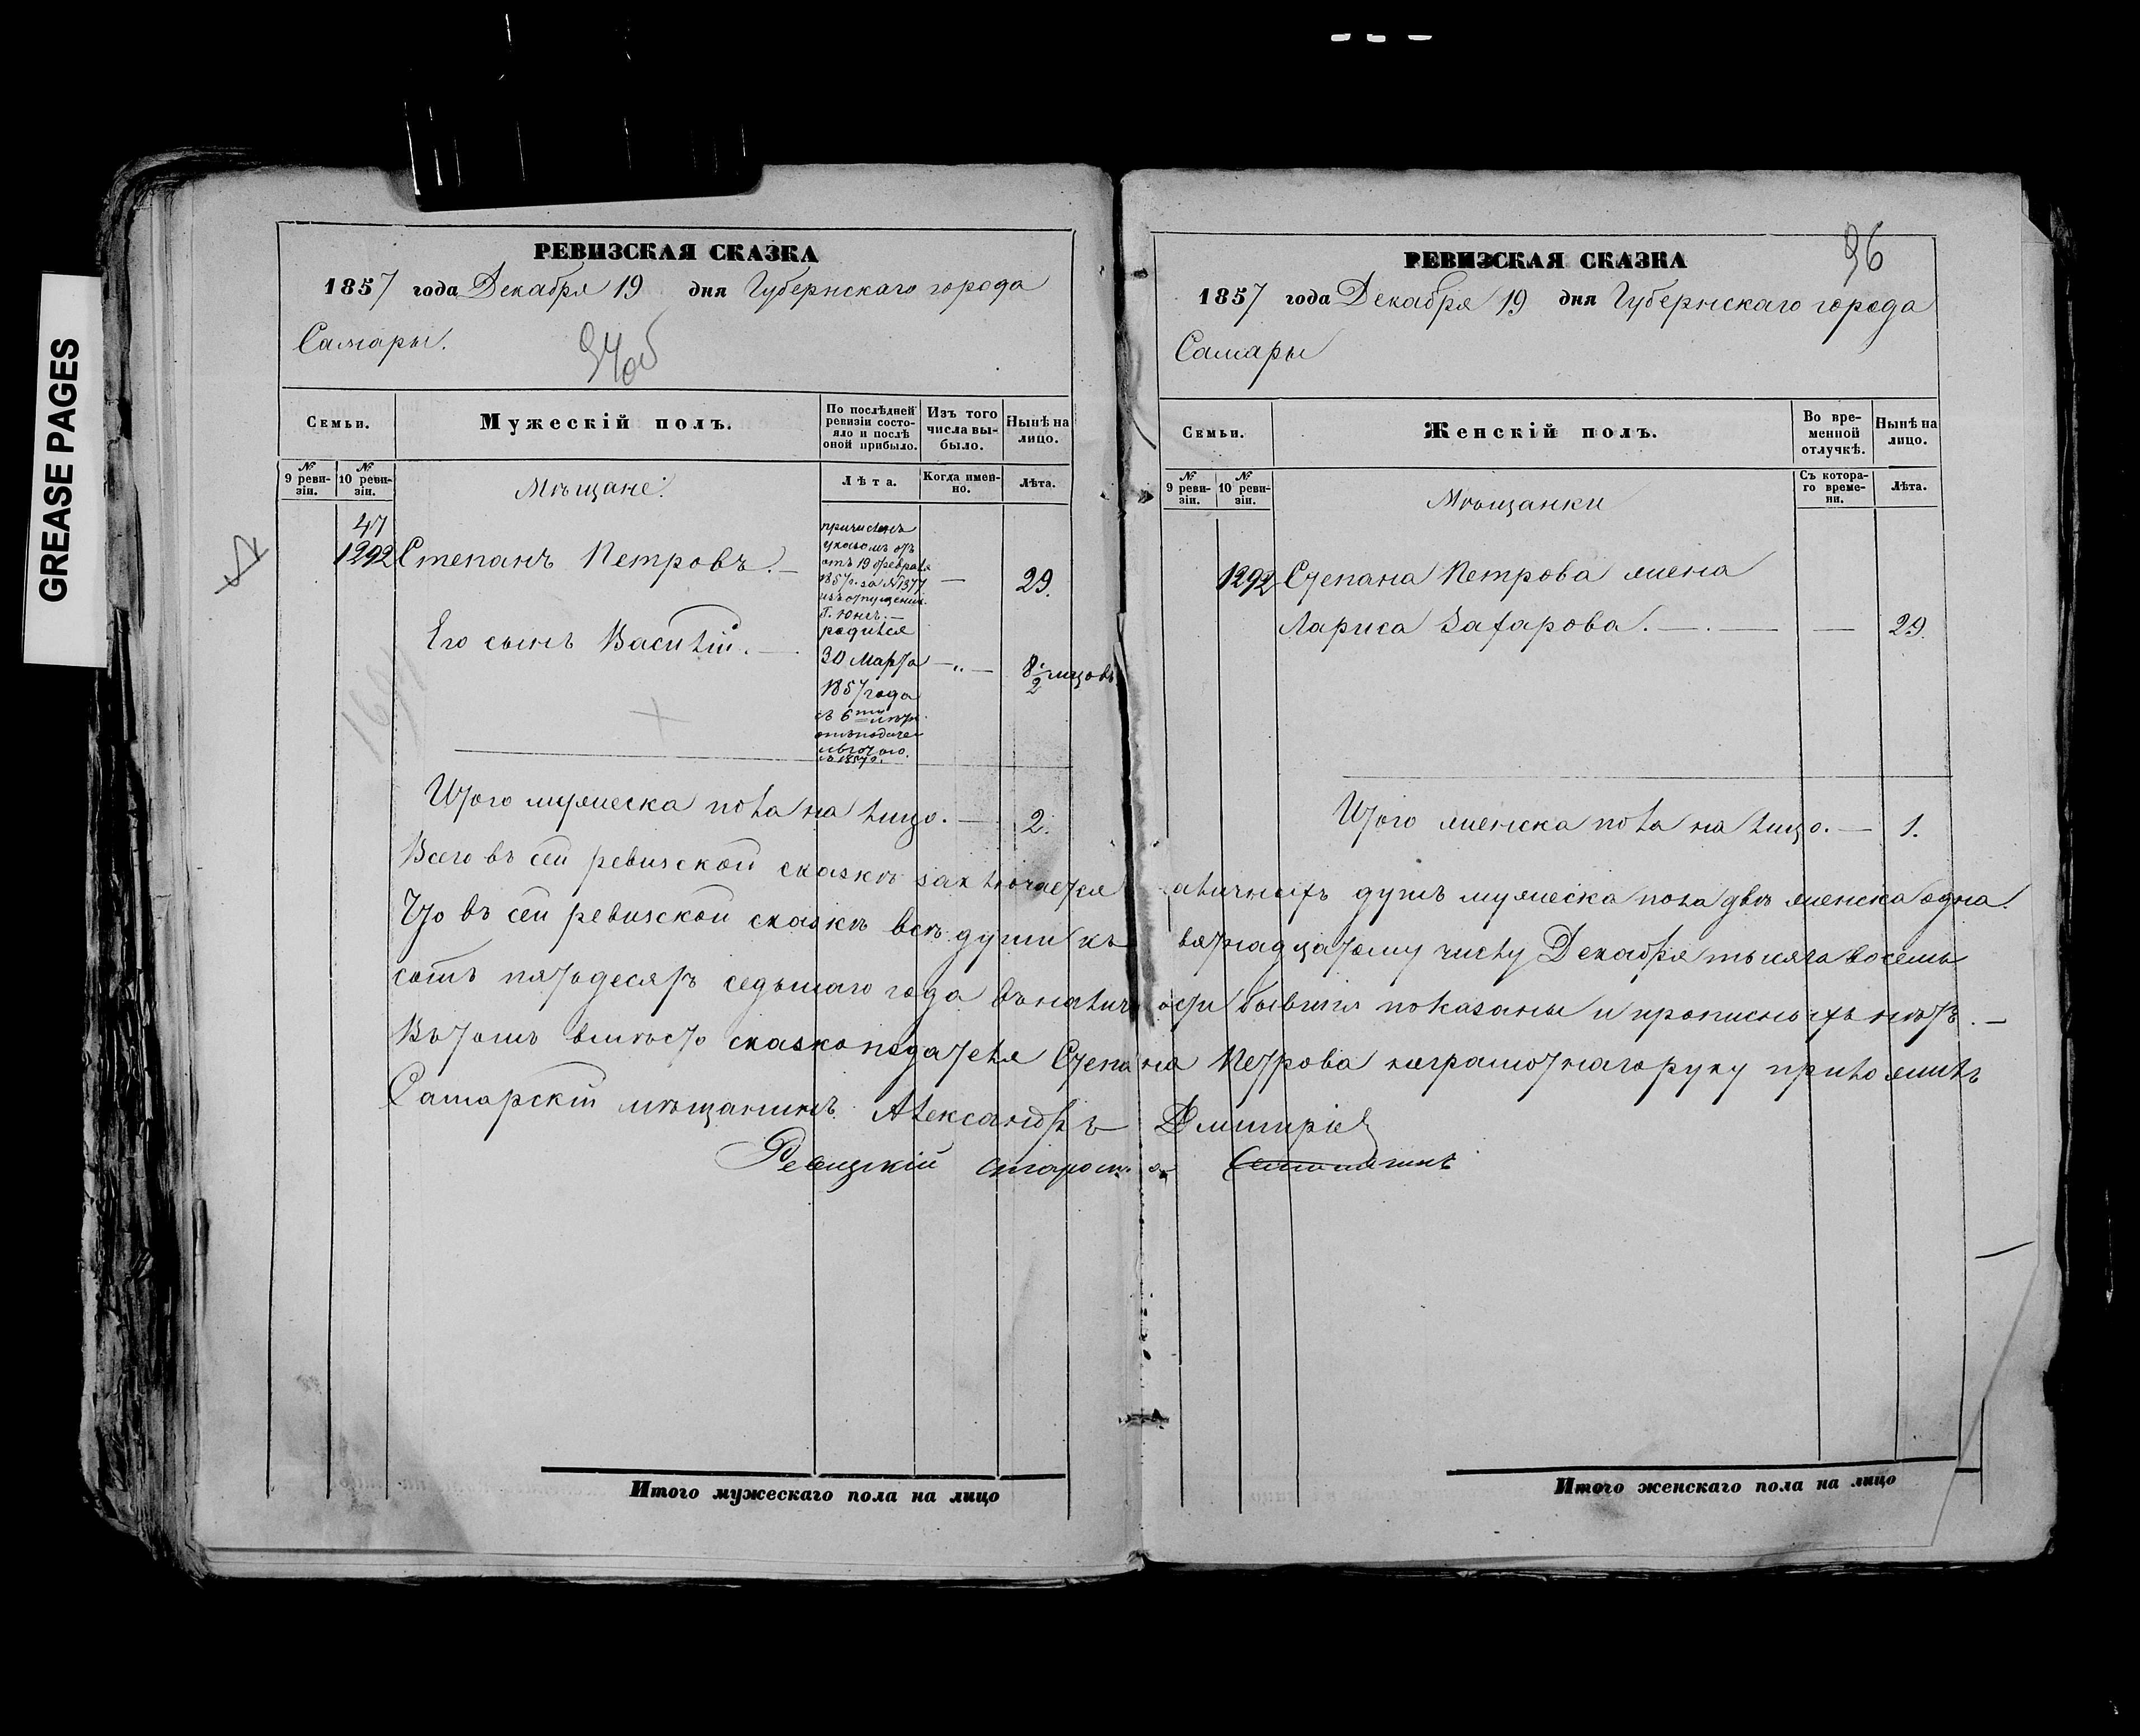 GREASE PAGES
РЕВИЗСКАЯ СКАЗКА
1857 года Декабря 19 дня Губернскаго города
Самары.
94об
Семьи.
Мужескій полъ.
По послѣдней ревизіи состояло и послѣ оной прибыло.
Изъ того числа выбыло.
Нынѣ на лицо.
№ 9 ревизіи.
№ 10 ревизіи.
Мѣщане.
Лѣта.
Когда именно.
Лѣта.
47
1292 Степанъ Петровъ. — 29.
причисленъ
указомъ
отъ 19 февраля
1857г. за №1377
Его сынъ Василій. — 8 1/2 мѣсцовъ
родился
30 Марта
1857 года
Итого мужеска пола на лицо. — 2.
Итого мужескаго пола на лицо
96
РЕВИЗСКАЯ СКАЗКА
1857 года Декабря 19 дня Губернскаго города
Самары
Семьи.
Женскій полъ.
Во временной отлучкѣ.
Нынѣ на лицо.
№ 9 ревизіи.
№ 10 ревизіи.
Мѣщанки
Съ котораго времени.
Лѣта.
1292 Степана Петрова жена
Лариса Захарова. — — 29.
Итого женска пола на лицо. — 1.
Всего въ сей ревизской сказкѣ заключается наличныхъ душъ мужеска пола двѣ женска одна.
Что въ сей ревизской сказкѣ всѣ души къ девятнадцатому числу Декабря тысяча восемь
сотъ пятьдесятъ седьмаго года въ наличности бывшія показаны и прописныхъ нѣтъ. —
Въ томъ вмѣсто сказкоподателя Степана Петрова неграмотнаго руку приложилъ
Самарскій мѣщанинъ Александръ Дмитріев
Ревизскій староста
Итого женскаго пола на лицо